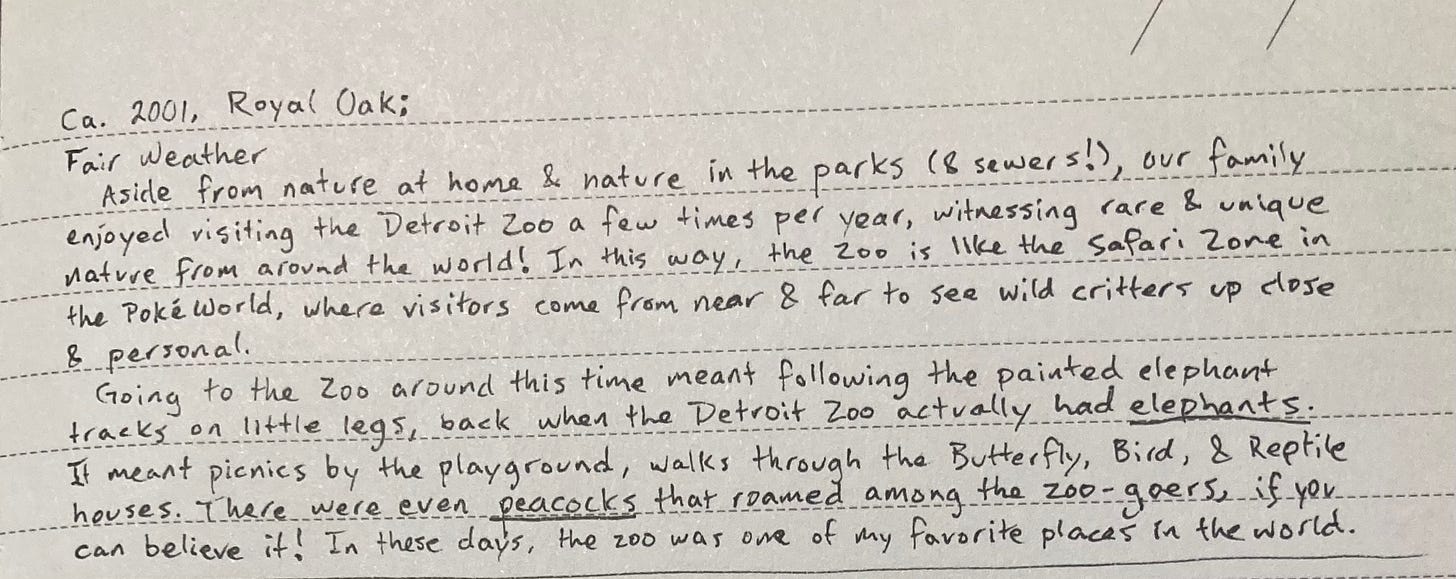 Ca. 2001, Royal Oak;
Fair Weather
Aside from nature at home & nature in the parks (& sewers!), our family
enjoyed visiting the Detroit Zoo a few times per year, witnessing rare & unique
nature from around the world! In this way, the Zoo is like the Safari Zone in
the Poké World, where visitors come from near & far to see wild critters up close
& personal.
Going to the Zoo around this time meant following the painted elephant
tracks on little legs, back when the Detroit Zoo actually had elephants.
It meant picnics by the playground, walks through the Butterfly, Bird, & Reptile
houses. There were even peacocks that roamed among the zoo-goers, if you
can believe it! In these days, the zoo was one of my favorite places in the world.